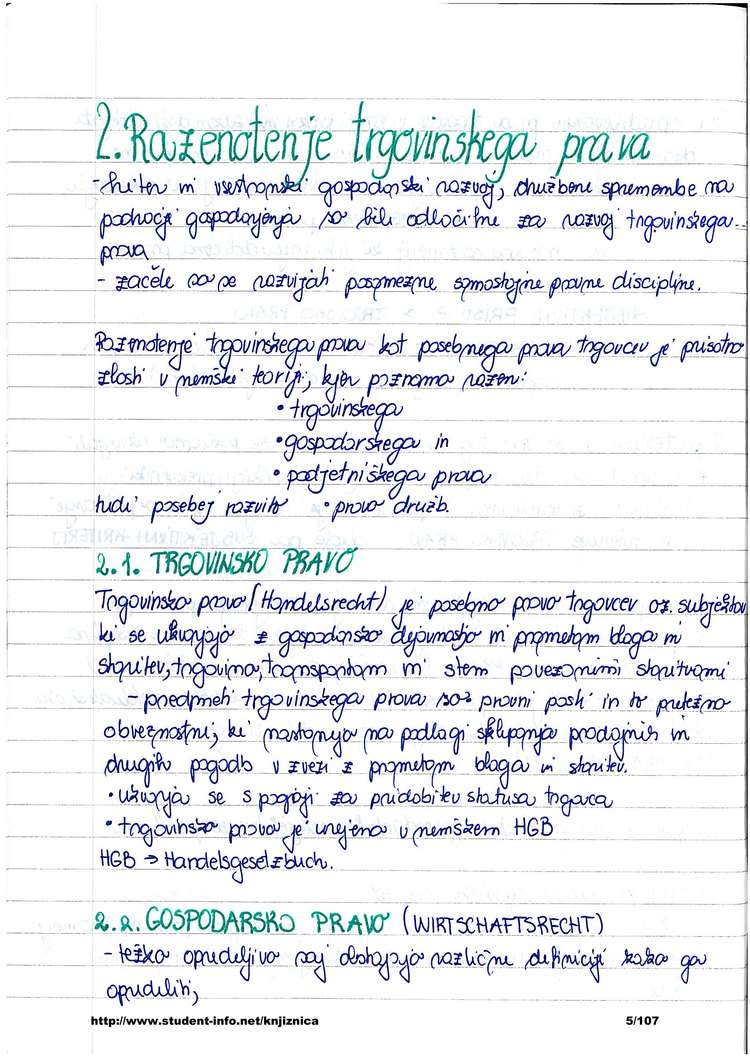 2. Razenotenje trgovinskega prava
- hiter in vsestranski gospodarski razvoj, družbene spremembe na
področji gospodarjenja so bile odločilne za razvoj trgovinskega
prava
- začele so se razvijati posamezne samostojne pravne discipline.
Razenotenje trgovinskega prava kot posebnega prava trgovcev je prisotno
zlasti v nemški teoriji, kjer poznamo razen:
• trgovinskega
• gospodarskega in
• podjetniškega prava
tudi posebej razvito • pravo družb.
2.1. TRGOVINSKO PRAVO
Trgovinsko pravo (Handelsrecht) je posebno pravo trgovcev oz. subjektov
ki se ukvarjajo z gospodarsko dejavnostjo in prometom blaga in
storitev, trgovino, transportom in s tem povezanimi storitvami
- predmeti trgovinskega prava so: pravni posli in to pretežno
obveznostni, ki nastanejo na podlagi sklepanja prodajnih in
drugih pogodb v zvezi z prometom blaga in storitev.
• ukvarja se s pogoji za pridobitev statusa trgovca
• trgovinsko pravo je urejeno v nemškem HGB
HGB → Handelsgeselzbuch.
2.2. GOSPODARSKO PRAVO (WIRTSCHAFTSRECHT)
- težko opredeljivo saj obstajajo različne definicije kako ga
opredeliti,
http://www.student-info.net/knjiznica 5/107